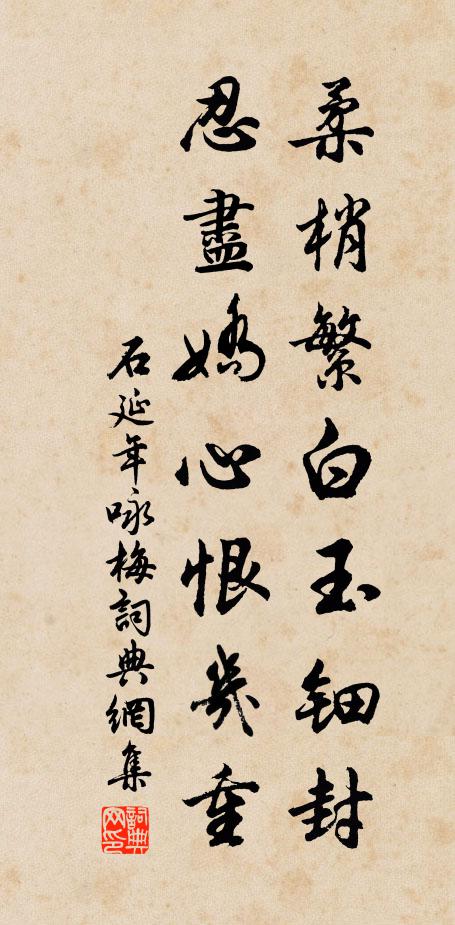 柔梢繁白玉钿封
忍盡嬌心恨幾重
石延年咏梅詞典網集
詞典网印